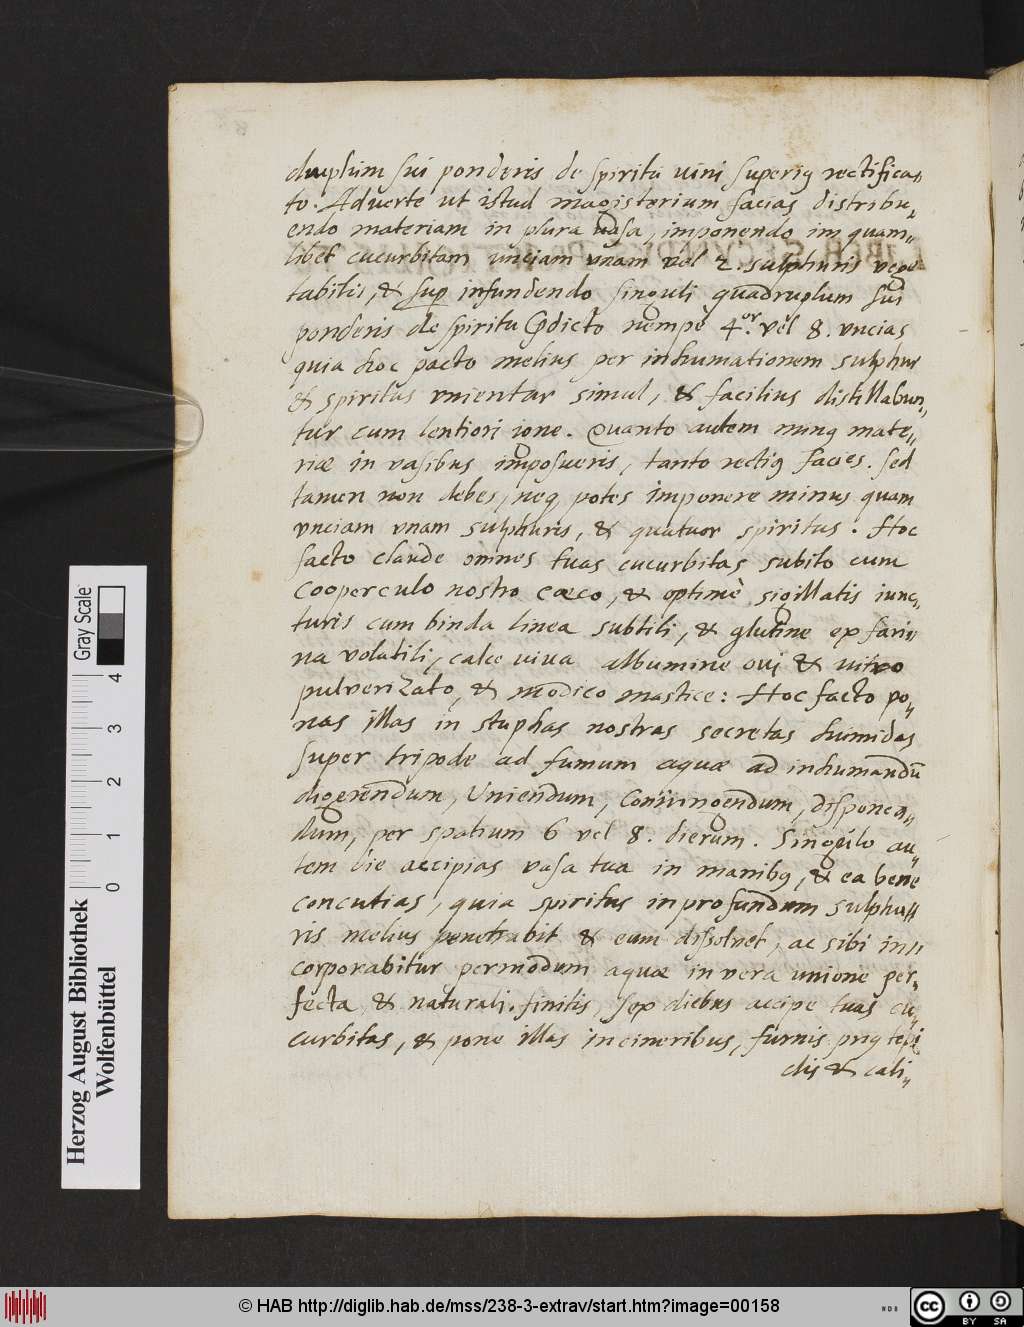 duplum sui ponderis de spiritu uini superiꝰ rectifica„
to. Aduerte ut istud magisterium facias distribu„
endo materiam in plura uasa, imponendo in quam„
libet cucurbitam unciam unam vel 2. sulphuris vege
tabilis, & sup infundendo singuli quadruplum sui
ponderis de spiritu p̄dicto nempè 4.or vel 8. vncias
quia hoc pacto melius per inhumationem sulphur
& spiritus vnientur simul, & facilius distillabun„
tur cum lentiori igne. Quanto autem minꝰ mate„
riæ in vasibus imposueris, tanto rectiꝰ facies. sed
tamen non debes, neqꝫ potes imponere minus quam
vnciam vnam sulphuris, & quatuor spiritus. Hoc
facto claude omnes tuas cucurbitas subito cum
Cooperculo nostro cæco, & optimè sigillatis iunc„
turis cum binda linea subtili, & glutine ex fari„
na volatili, calce uiua albumine oui & uitro
pulverizato, & modico mastice: Hoc facto po„
nas illas in stuphas nostras secretas humidas
super tripode ad fumum aquæ ad inhumandū
digerendum, Uniendum, Coniungendum, disponen„
dum, per spatium 6 vel 8. dierum. Singulo au„
tem die accipias vasa tua in manibꝰ, & ea bene
concutias, quia spiritus in profundum sulphu„
ris melius penetrabit & eum dissoluet, ac sibi in„
corporabitur per modum aquæ in vera unione per„
fecta & naturali. finitis, sex diebus accipe tuas cu„
curbitas, & pone illas in cineribus, furnis priꝰ tepi
dis & cali„
Herzog August Bibliothek
Wolfenbüttel
0 1 2 3 4
Gray Scale
© HAB http://diglib.hab.de/mss/238-3-extrav/start.htm?image=00158
NDB
cc BY SA